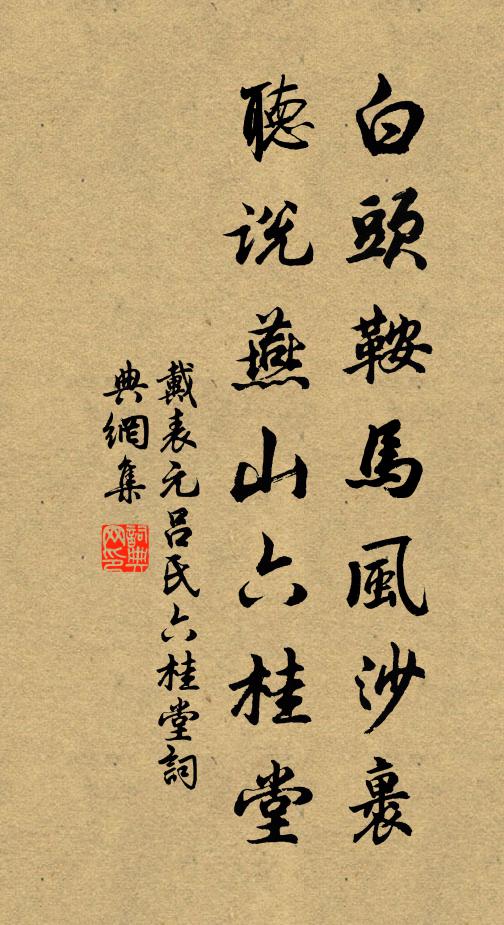 白頭鞍馬風沙裏
聽說燕山六桂堂
戴表元呂氏六桂堂詞
典網集
詞典網印